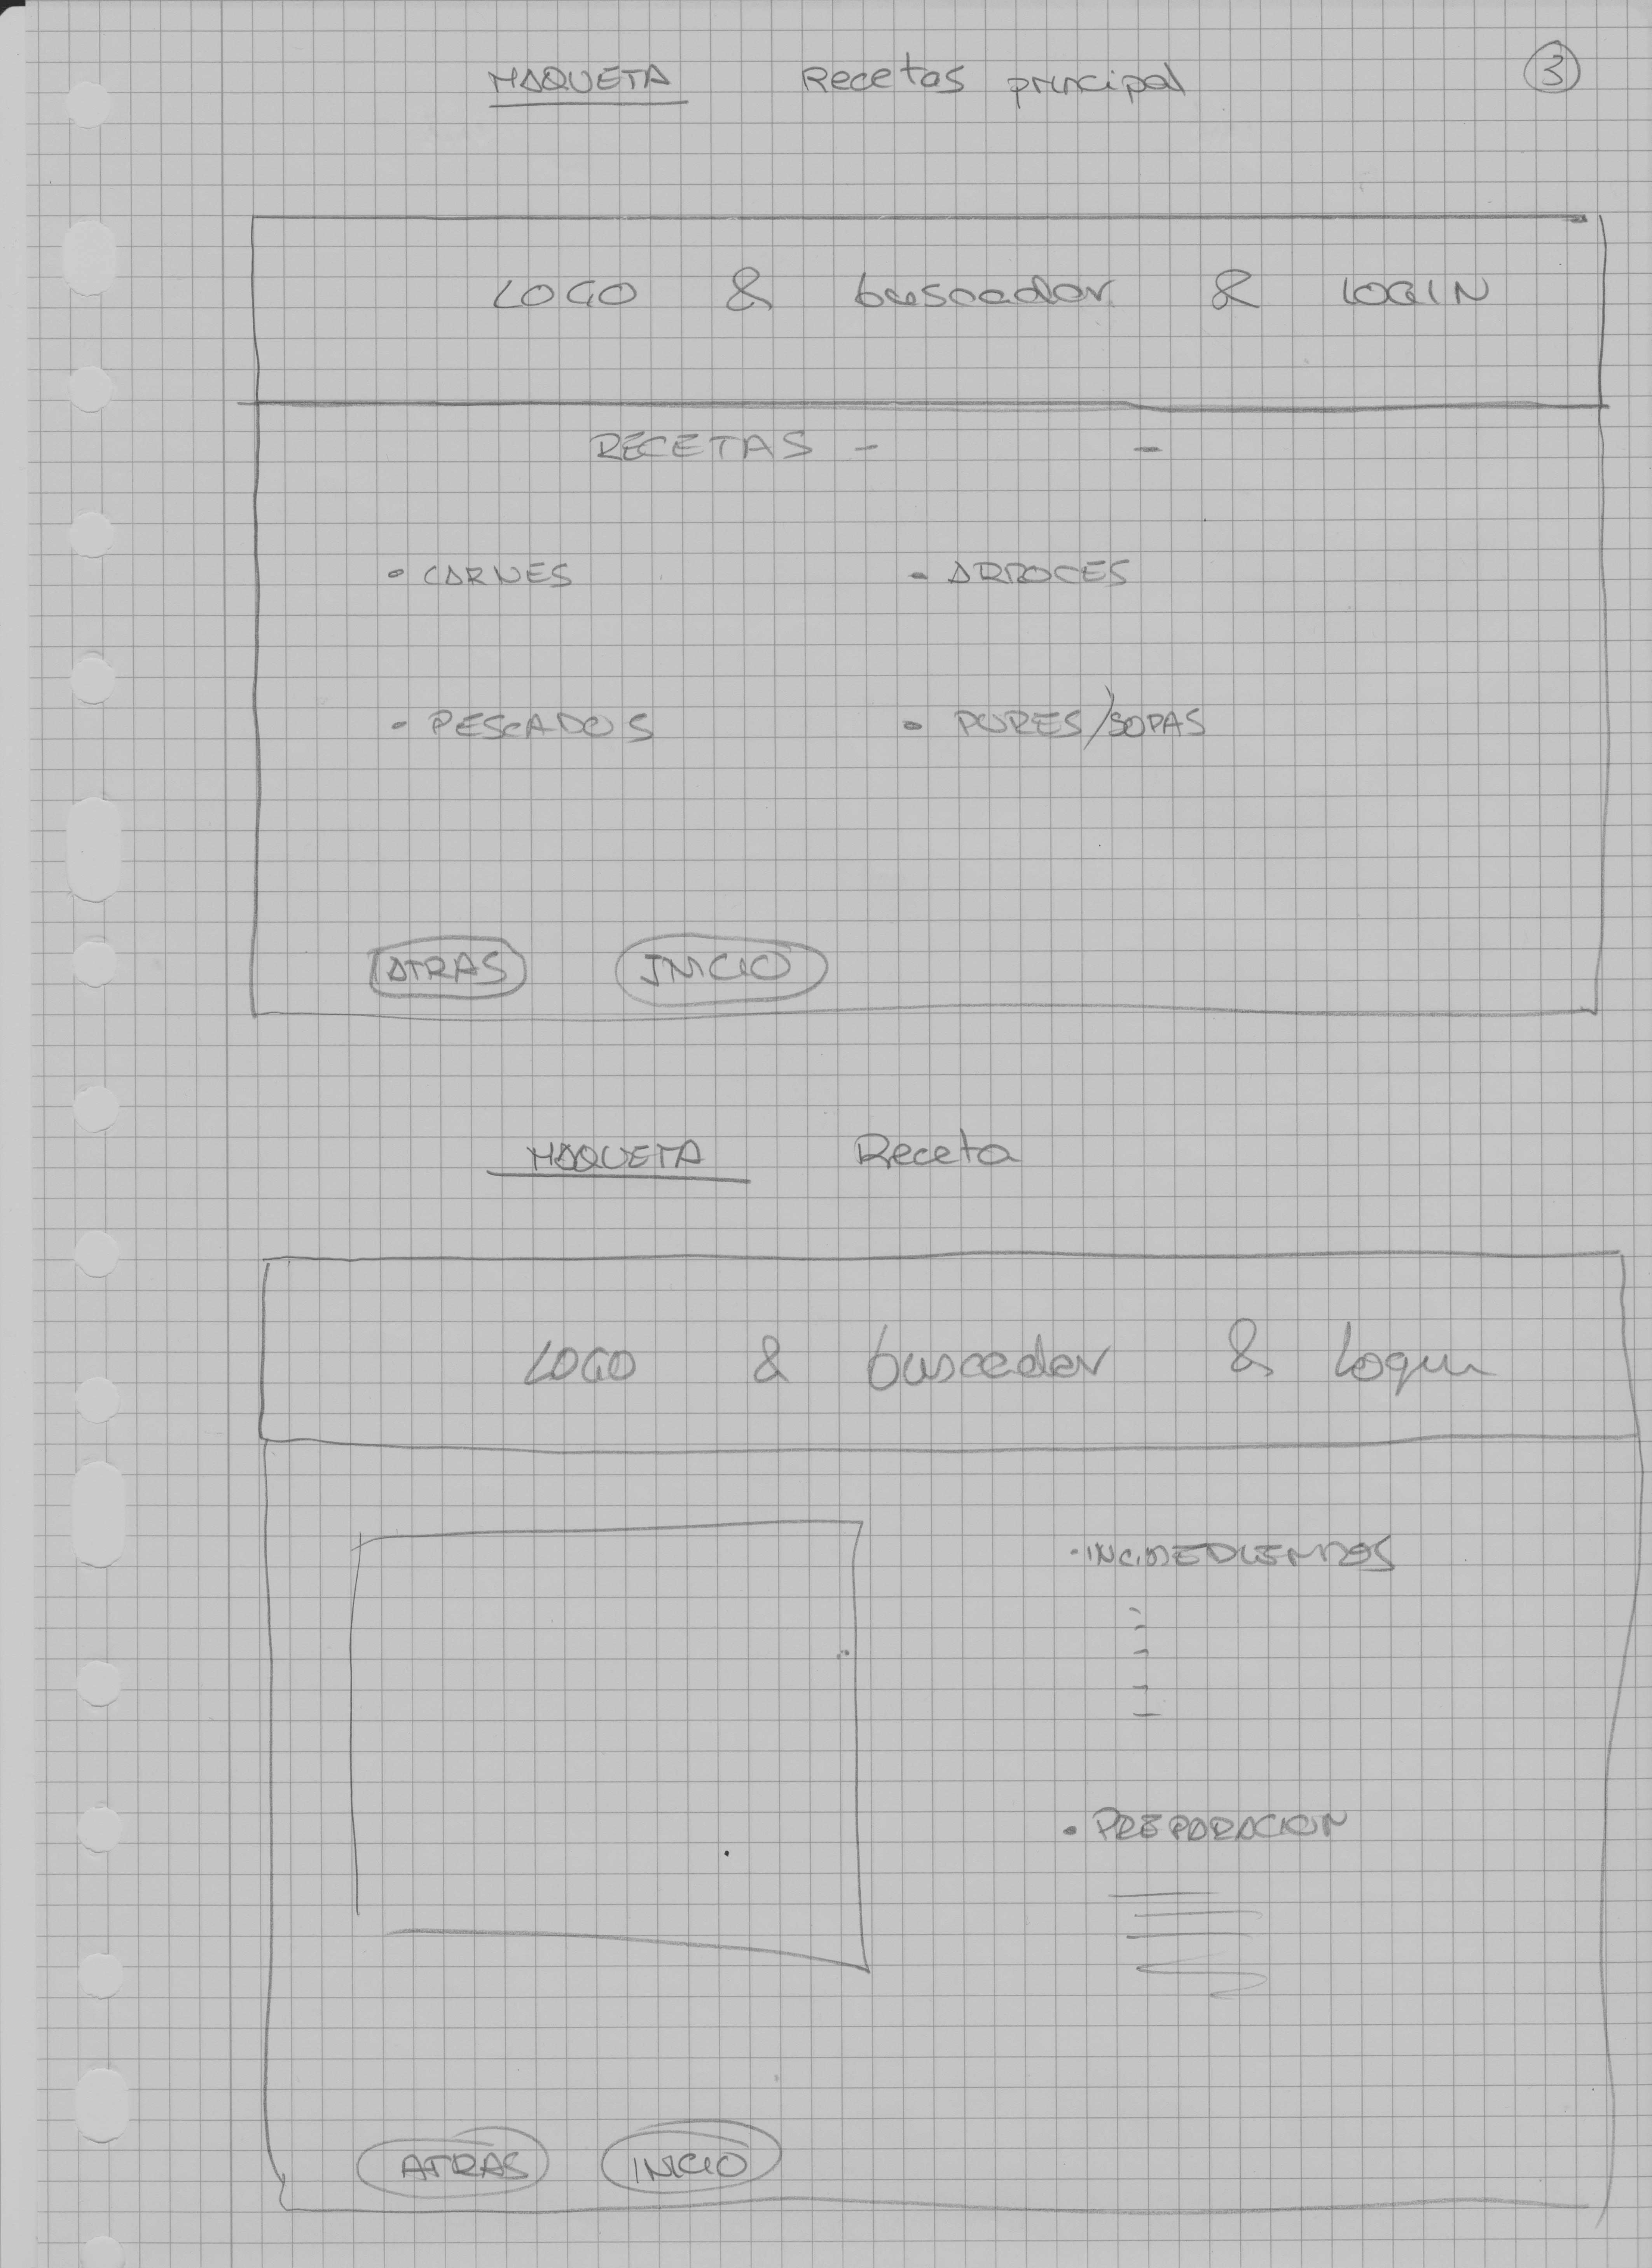 MAQUETA Recetas principal 3
LOGO & buscador & LOGIN
RECETAS - -
• CARNES • ARROCES
• PESCADOS • PURES/SOPAS
ATRAS INICIO
MAQUETA Receta
LOGO & buscador & Login
• INGREDIENTES
• PREPARACION
ATRAS INICIO